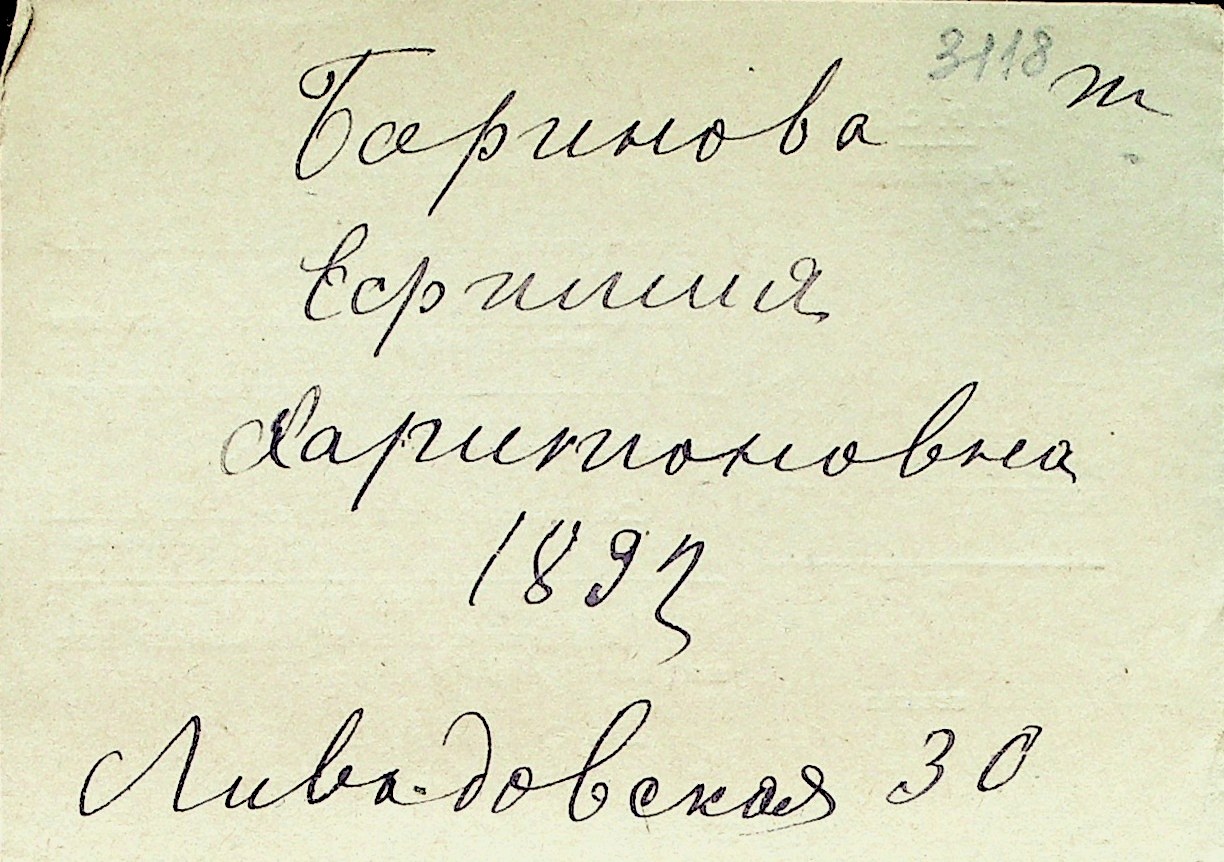 3118 т
Баринова
Ефимия
Харитоновна
1893
Ливадовская 30